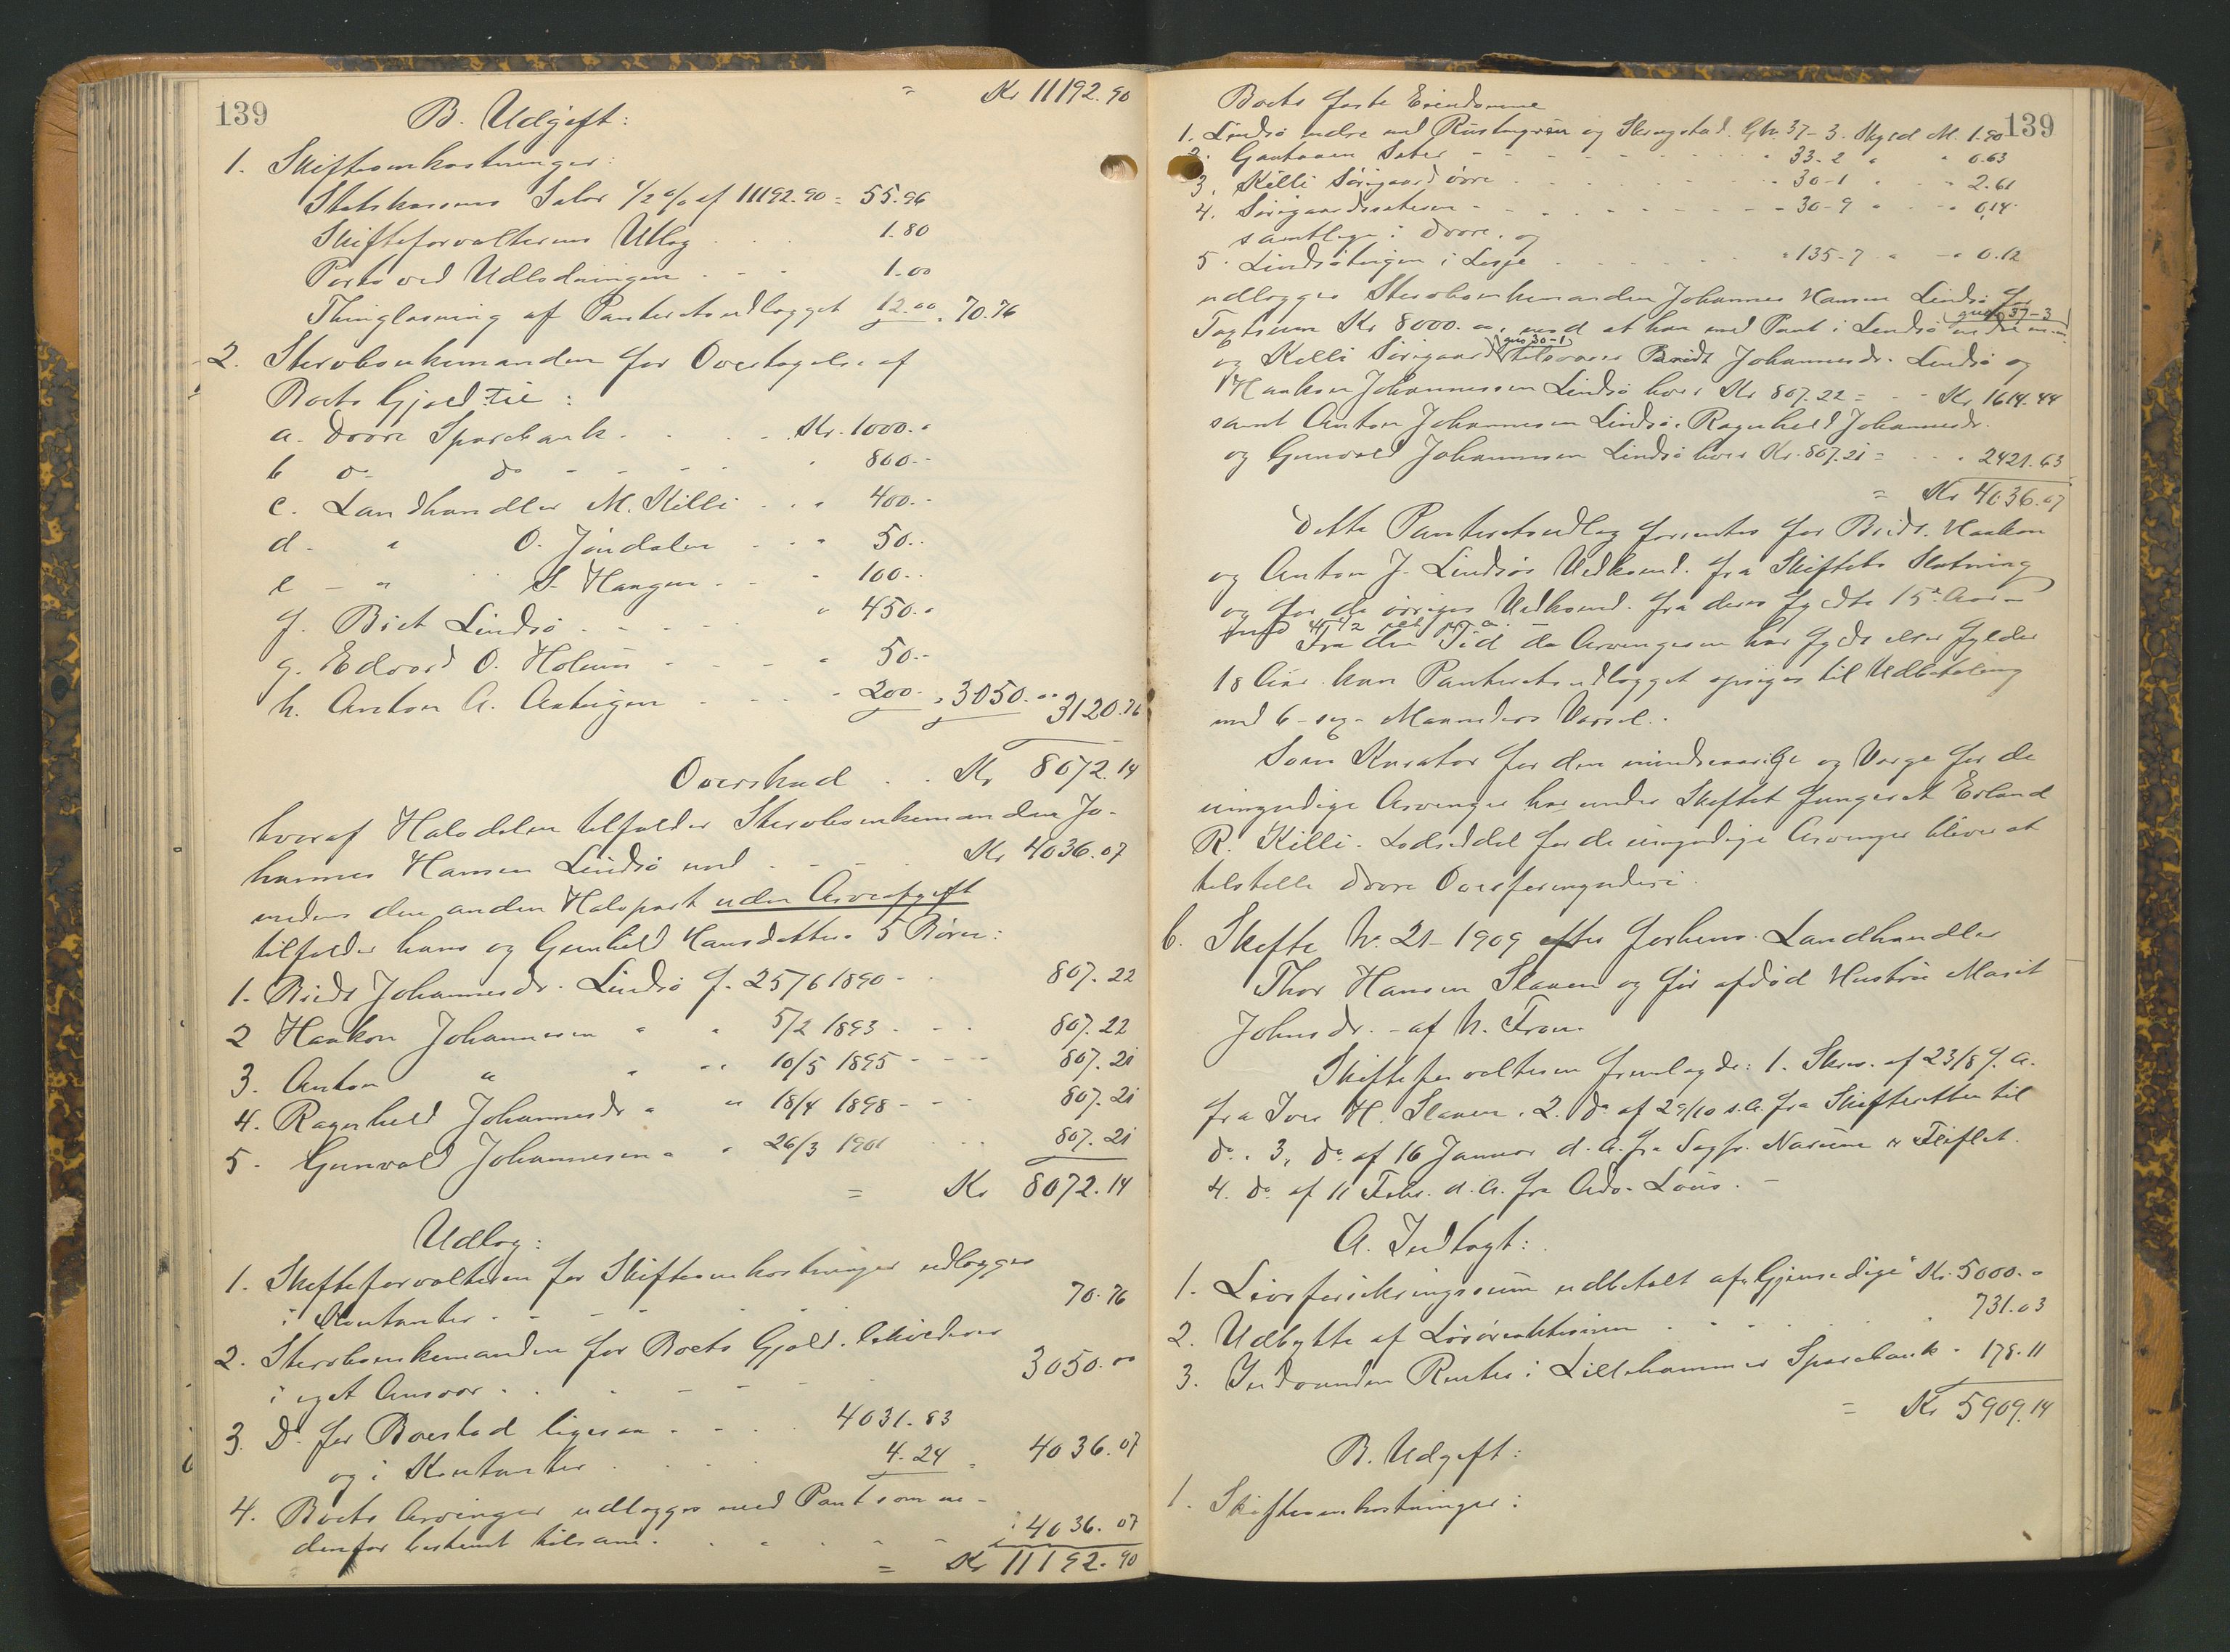 139
= Kr 11192.90
B. Udgift:
1. Skifteomkostninger:
Statskassens Salær 1/2 % af 11192.90 = 55.96
Skifteforvalterens Utlæg . . . 1.80
Porto ved Udlodningen - - - 1.00
Thinglæsning af Panteretsudlægget 12.00 = 70.76
2. Sterboenkemanden for Overtagelse af
Boets Gjæld til:
a. Dovre Sparebank . . . Kr. 1000.-
b do do - - - - " 800.-
c. Landhandler M. Killi . . " 400.-
d. " O. Jöndalen . . " 50.-
e - " S. Haugen - - " 100.-
f. Brit Lindsö - - - - " 450.-
g. Edvard O. Holum - - - " 50.-
h. Anton A. - - - " 200.- = 3050.00 3120.76
Overskud . . Kr 8072.14
hvoraf Halvdelen tilfalder Sterboenkemanden Jo-
hannes Hansen Lindsö med - - - Kr 4036.07
medens den anden Halvpart uden Arveafgift
tilfalder hans og Gunhild Hansdatters 5 Börn:
1. Brit Johannesdr. Lindsö f. 25/6 1890 - . 807.22
2 Haakon Johannesen " " 5/2 1893 - - . 807.22
3. Anton " " " 10/5 1895 - - - 807.21
4. Ragnhild Johannesdr " " 18/4 1898 - - - 807.21
5. Gunvald Johannesen " " 26/3 1901 . . . 807.21
= Kr 8072.14
Udlæg:
1. Skifteforvalteren for Skifteomkostninger udlægges
i Kontanter - - - - - - 70.76
2. Sterboenkemanden for Boets Gjæld. likvideres
i eget Ansvar . . - - - - 3050.00
3. Do. for Boeslod ligesaa - . . . 4031.83
og i Kontanter . . . . . 4.24 = 4036.07
4. Boets Arvinger udlægges med Pant som ne-
denfor bestemt tilsam. . . . . - : 4036.07
= Kr 11192.90
139
Boets faste Eiendomme
1. Lindsö nedre med Rustungröen og Skrugstad. Gb. 37-3. Skyld M. 1.90
2. Gautaaen Sæter - - - - - - - " 33-2 " " 0.63
3. Killi Sörigaard övre . . . . . - " 30-1 " - " 2.61
4. Sörigaardssæteren - - . - - - - " 30-9 " - " 0.14
samtlige i Dovre, og
5. Lindsöteigen i Lesje . . . - . . " 135-7 " - " 0.12
udlægges Sterboenkemanden Johannes Hansen Lindsö for
Taxtsum Kr 8000.00, mod at han med Pant i Lindsö nedre gno 37-3
og Killi Sörigaard gno 30-1 tilsvarer Brit Johannesdr. Lindsö og
Haakon Johannessen Lindsö hver Kr 807.22 = . - Kr 1614.44
samt Anton Johannesen Lindsö, Ragnhild Johannesdr.
og Gunvald Johannesen Lindsö hver Kr. 807.21 = - . . 2421.63
= Kr 4036.07
Dette Panteretsudlæg forrentes for Brits, Haakon
og Anton J. Lindsös Vedkomd. fra Skiftets Slutning
og for de övriges Vedkomd. fra deres fyldte 15de Aar -
med 4 1/2 pct p. a.
Fra den Tid da Arvingerne har fyldt eller fylder
18 Aar kan Panteretsudlægget opsiges til Udbetaling
med 6 - sex - Maaneders Varsel.
Som Kurator for den mindreaarige og Værge for de
umyndige Arvinger har under Skiftet fungeret Erland
R. Killi. Lodseddel for de umyndige Arvinger bliver at
tilstille Dovre Overformynderi.
6. Skifte N. 21-1909 efter forhenv. Landhandler
Thor Hansen Slaaen og för afdöd Hustru Marit
Johnsdr. - af N. Fron.
Skifteforvalteren fremlagde: 1. Skriv. af 23/8 f. A.
fra Iver H. Slaaen. 2. Do af 29/10 s.A. fra Skifteretten til
do. 3, do. af 16 Januar d. A. fra Sagf. Narum & Fliflet.
4. do. af 11 Febr. d. A. fra Adv. Lous. -
A. Indtægt:
1. Livsforsikringssum udbetalt af „Gjensidige" Kr. 5000.-
2. Udbytte af Lösöreauktionen . - - . . . . 731.03
3. Indvundne Renter i Lillehammer Sparebank - 178.11
= Kr 5909.14
B. Udgift:
1. Skifteomkostninger: